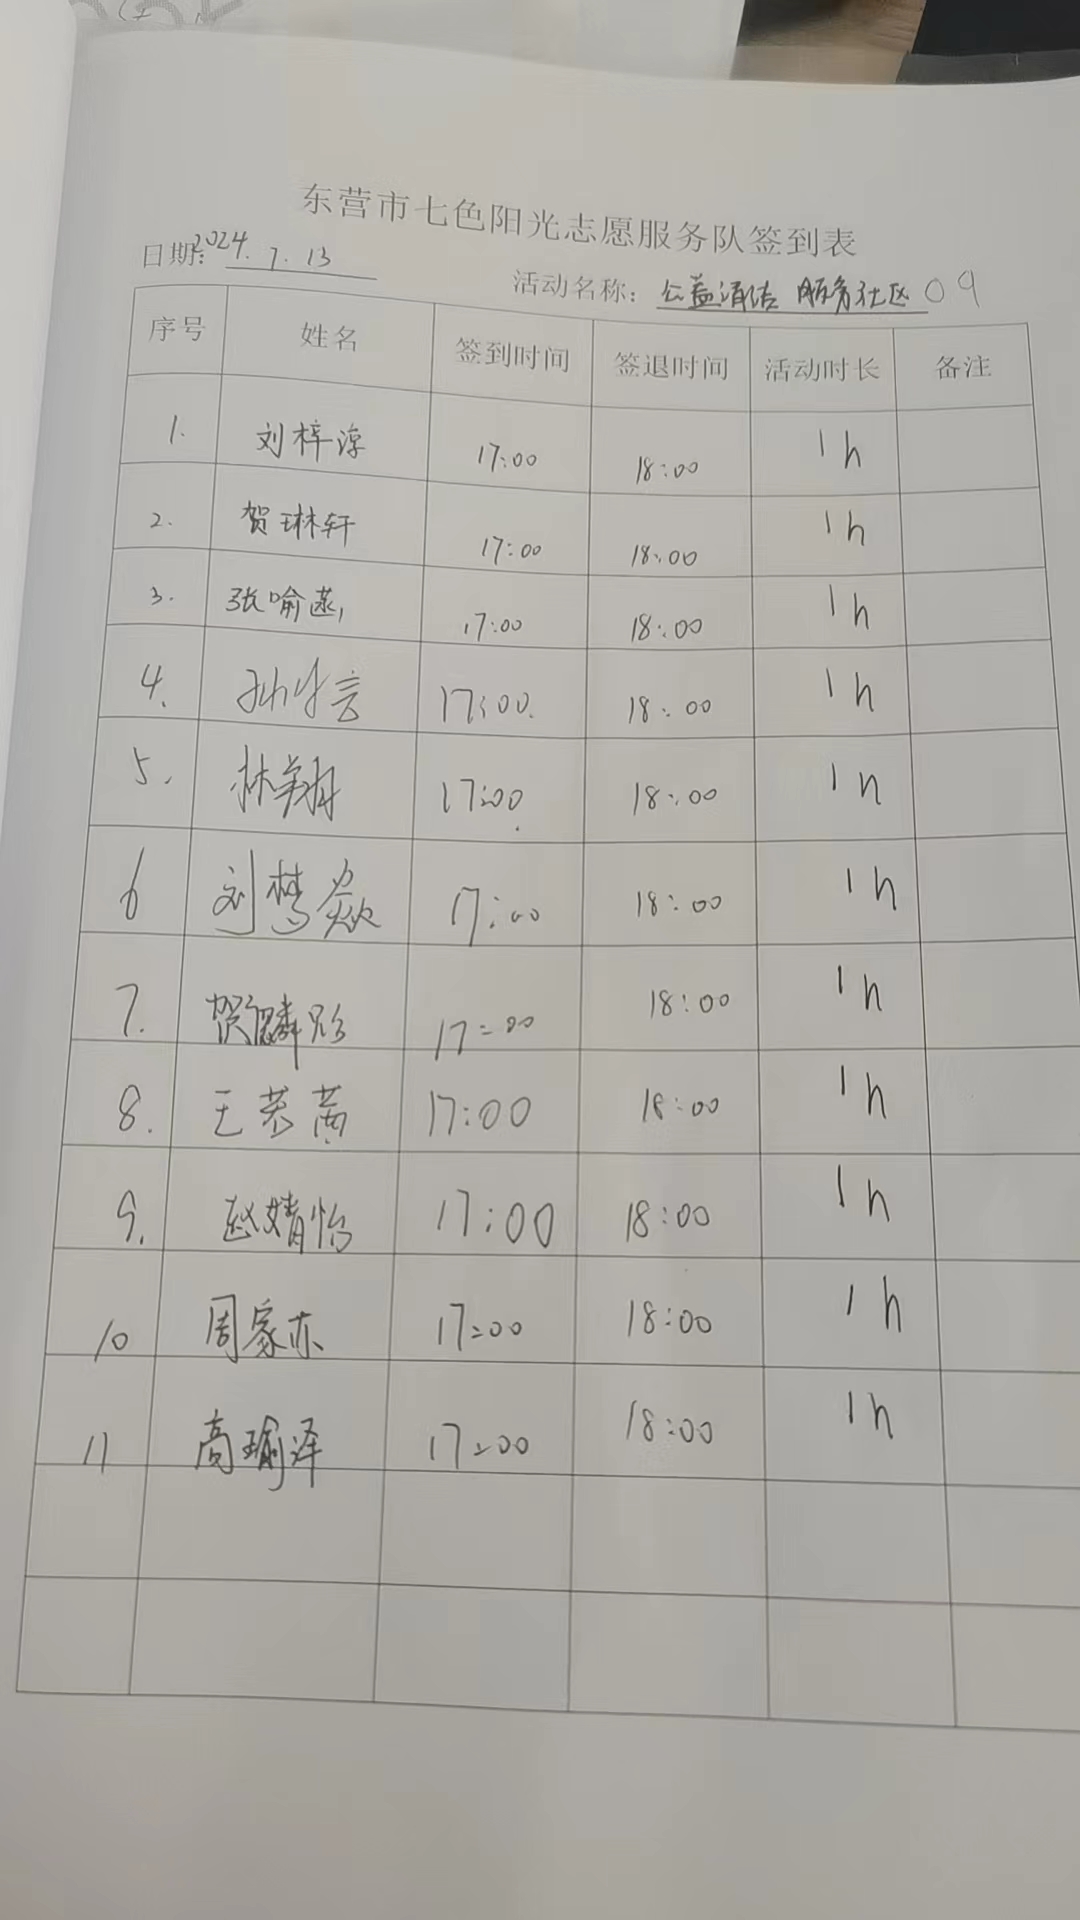 东营市七色阳光志愿服务队签到表
日期: 2024.7.13
活动名称: 公益清洁 服务社区 09
序号 姓名 签到时间 签退时间 活动时长 备注
1. 刘梓淳 17:00 18:00 1h
2. 贺琳轩 17:00 18:00 1h
3. 张喻 17:00 18:00 1h
4. 孙 言 17:00. 18:00 1h
5. 林翔 17:00 18:00 1h
6 刘梦焱 17:00 18:00 1h
7. 贺麟 17:00 18:00 1h
8. 王 17:00 18:00 1h
9. 赵婧怡 17:00 18:00 1h
10 周家亦 17:00 18:00 1h
11 高瑜泽 17:00 18:00 1h